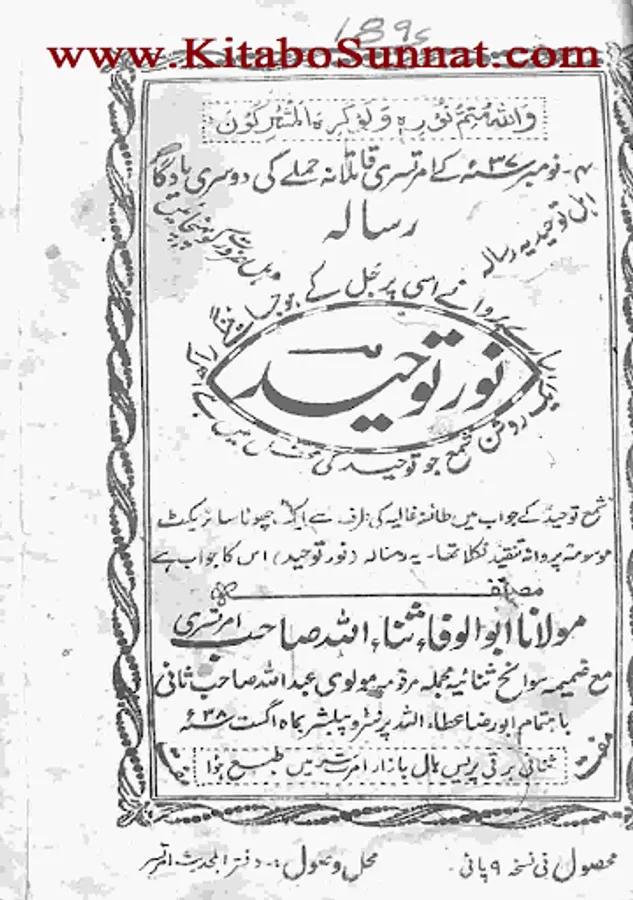 1895
www.KitaboSunnat.com
وَاللّٰهُ مُتِمُّ نُوْرِهٖ وَلَوْ كَرِهَ الْمُشْرِكُوْنَ
۴۔ نومبر ۳۷ئہ کے امرتسری قاتلانہ حملے کی دوسری یادگار
اہل توحید یہ رسالہ
رسالہ
وہیں ضرور
پروانے اسی پر جل کے ہو جائینگے راکھ
نور توحید
ایک روشن شمع جو توحید کی محفل میں ہے
شمع توحید کے جواب میں طائفہ غالیہ کی طرف سے ایک چھوٹا سا ٹریکٹ
موسومہ پروانہ تنقید نکلا تھا۔ یہ رسالہ (نور توحید) اس کا جواب ہے
مصنفہ
مولانا ابوالوفاء ثناء اللہ صاحب امرتسری
مع ضمیمہ سوانح ثنائیہ مجملہ مرقومہ مولوی عبداللہ صاحب ثانی
باہتمام ابورضا عطاء اللہ پرنٹر و پبلشر بماہ اگست ۳۸ئہ
ثنائی برقی پریس ہال بازار امرتسر میں طبع ہوا
مفت
محصول فی نسخہ ۹ پائی
محل وصول :۔ دفتر اہلحدیث امرتسر